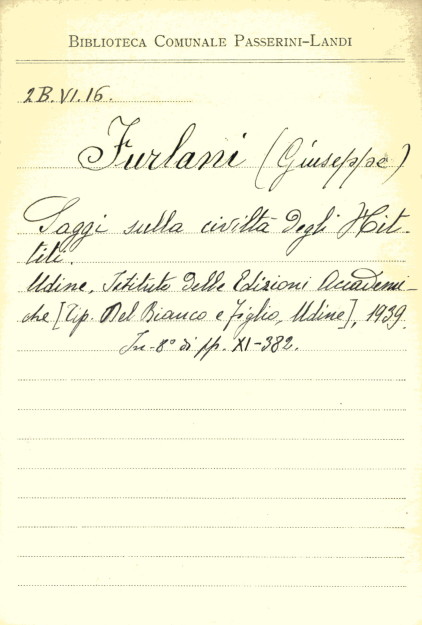 BIBLIOTECA COMUNALE PASSERINI-LANDI
2B.VI.16.
Furlani (Giuseppe)
Saggi sulla civiltà degli Hit-
titi.
Udine, Istituto delle Edizioni Accademi-
che [Tip. Del Bianco e Figlio, Udine], 1939.
In-8° di pp. XI-382.